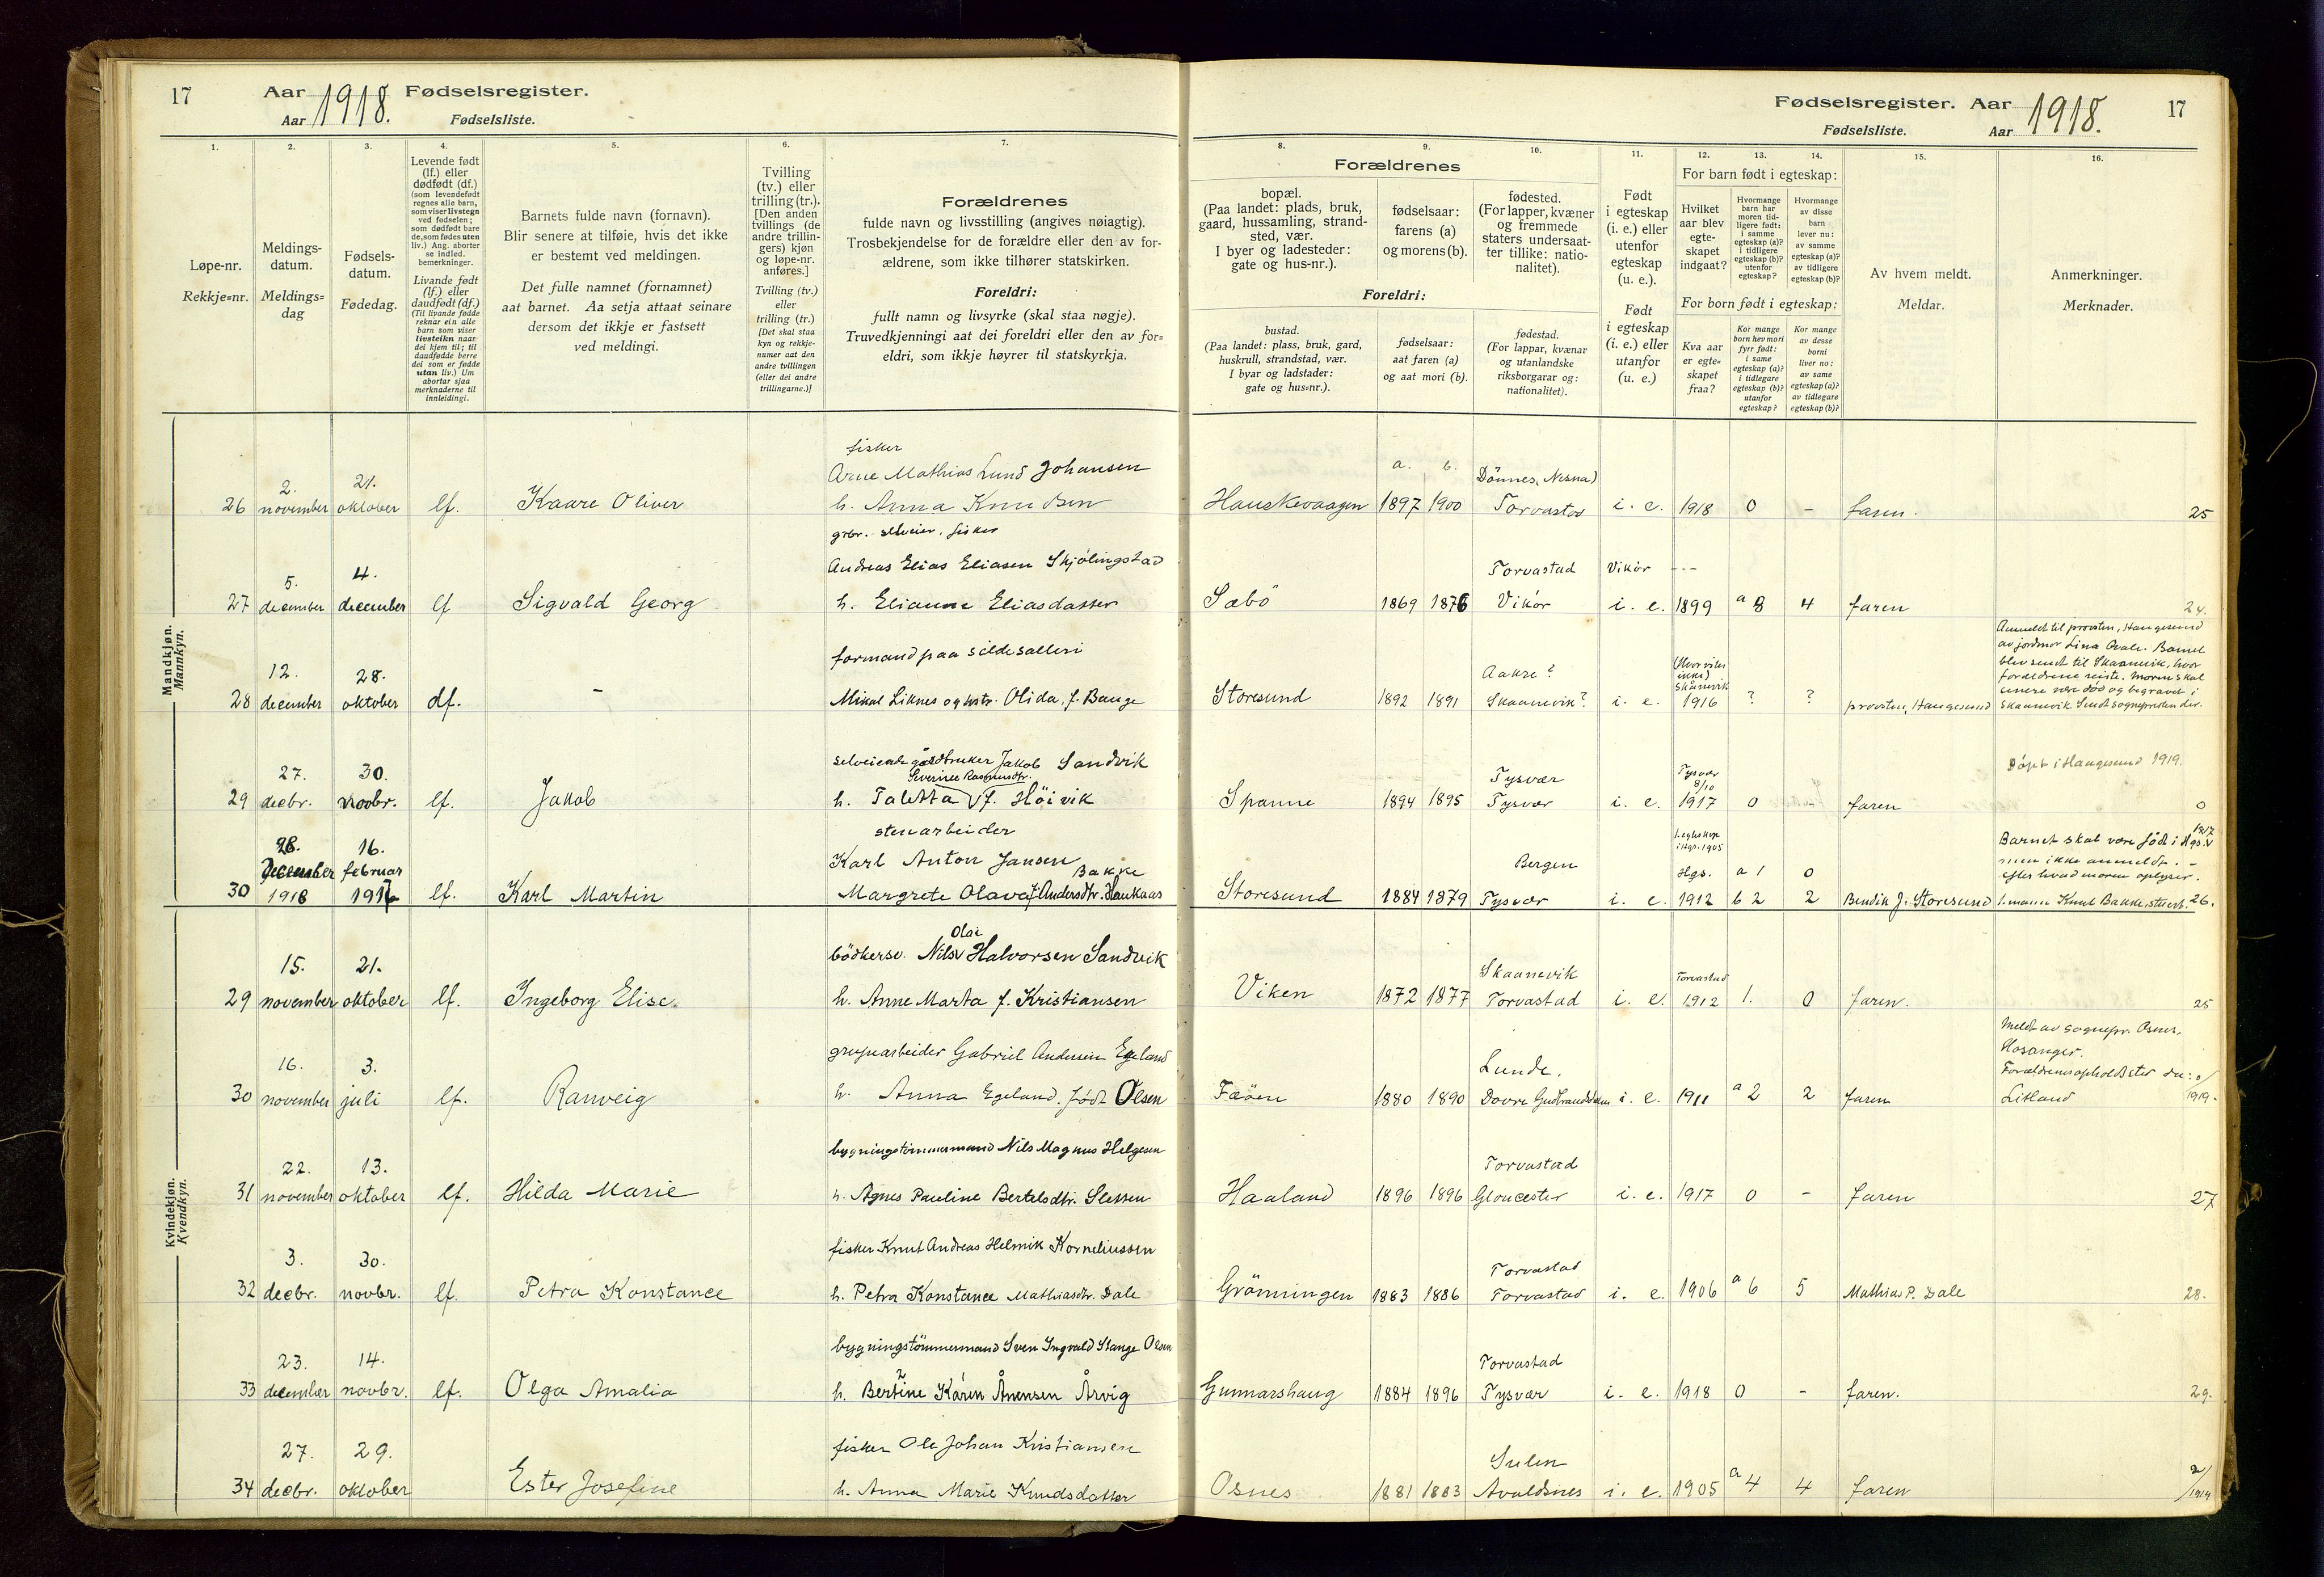 17
Aar 1918. Fødselsregister.
Aar Fødselsliste.
Fødselsregister. Aar 1918. 17
Fødselsliste. Aar
1. 2. 3. 4. 5. 6. 7.
Løpe-nr.
Rekkje=nr.
Meldings-
datum.
Meldings=
dag
Fødsels-
datum.
Fødedag.
Levende født
(lf.) eller
dødfødt (df.)
(som levendefødt
regnes alle barn,
som viser livstegn
ved fødselen;
som dødfødt bare
de, som fødes uten
liv.) Ang. aborter
se indled.
bemerkninger.
Livande født
(lf.) eller
daudfødt (df.)
(Til livande fødde
reknar ein alle
barn som viser
livsteikn naar
dei kjem til; til
daudfødde berre
dei som er fødde
utan liv.) Um
abortar sjaa
merknaderne til
innleidingi.
Barnets fulde navn (fornavn).
Blir senere at tilføie, hvis det ikke
er bestemt ved meldingen.
Det fulle namnet (fornamnet)
aat barnet. Aa setja attaat seinare
dersom det ikkje er fastsett
ved meldingi.
Tvilling
(tv.) eller
trilling (tr.).
[Den anden
tvillings (de
andre trillin-
gers) kjøn
og løpe-nr.
anføres.]
Tvilling (tv.)
eller
trilling (tr.)
[Det skal staa
kyn og rekkje-
numer aat den
andre tvillingen
(eller dei andre
trillingarne.)]
Forældrenes
fulde navn og livsstilling (angives nøiagtig).
Trosbekjendelse for de forældre eller den av for-
ældrene, som ikke tilhører statskirken.
Foreldri:
fullt namn og livsyrke (skal staa nøgje).
Truvedkjenningi aat dei foreldri eller den av for=
eldri, som ikkje høyrer til statskyrkja.
8. 9. 10. 11. 12. 13. 14. 15. 16.
Forældrenes
bopæl.
(Paa landet: plads, bruk,
gaard, hussamling, strand-
sted, vær.
I byer og ladesteder:
gate og hus-nr.).
fødselsaar:
farens (a)
og morens (b).
fødested.
(For lapper, kvæner
og fremmede
staters undersaat-
ter tillike: natio-
nalitet).
Foreldri:
bustad.
(Paa landet: plass, bruk, gard,
huskrull, strandstad, vær.
I byar og ladstader:
gate og hus=nr.).
fødselsaar:
aat faren (a)
og aat mori (b).
fødestad.
(For lappar, kvænar
og utanlandske
riksborgarar og:
nationalitet).
Født
i egteskap
(i. e.) eller
utenfor
egteskap
(u. e.).
Født
i egteskap
(i. e.) eller
utanfor
(u. e.)
For barn født i egteskap:
Hvilket
aar blev
egte-
skapet
indgaat?
Hvormange
barn har
moren tid-
ligere født:
i samme
egteskap (a)?
i tidligere
egteskap (b)?
utenfor
egteskap?
Hvormange
av disse
barn
lever nu:
av samme
egteskap (a)?
av tidligere
egteskap (b)?
For born født i egteskap:
Kva aar
er egte=
skapet
fraa?
Kor mange
born hev mori
fyrr født:
i same
egteskap (a)?
i tidlegare
egteskap (b)?
utanfor
egteskap?
Kor mange
av desse
borni
liver no:
av same
egteskap (a)?
av tidlegare
egteskap (b)?
Av hvem meldt.
Meldar.
Anmerkninger.
Merknader.
Mandkjøn.
Mannkyn.
fisker
2. 21. Arne Mathias Lund Johansen a. b. Dønnes, Nesna)
26 november oktober lf. Kaare Oliver h. Anna Knudsen Hauskevaagen 1897 1900 Torvastad i. e. 1918 0 - faren. 25
grbr. selveier, fisker
5. 4. Andreas Elias Eliasen Skjölingstad Torvastad Vikör
27 december december lf Sigvald Georg h. Elianne Eliasdatter Sæbö 1869 1876 Vikör i. e. 1899 a 8 4 faren 24.
12. 28. formand paa sildesalteri Aakre? (Hvor vites ikke) Skånevik
28 december oktober df. - Mikal Liknes og hstr. Olida, f. Bauge Storesund 1892 1891 Skaanevik? i. e. 1916 ? ? provsten, Haugesund
Anmeldt til provsten, Haugesund
av jordmor Lina Qvale. Barnet
blev sendt til Skaanevik, hvor
forældrene reiste. Moren skal
senere være död og begravet i
Skaanevik. Sendt sognepresten der.
27. 30. selveiende gårdbruker Jakob Sandvik Tysvær Tysvær 8/10 Döpt i Haugesund 1919.
Severine Rasmusdtr.
29 decbr. novbr. lf. Jakob h. Taletta f. Höivik Spanne 1894 1895 Tysvær i. e. 1917 0 - faren 0
stenarbeider
28. 16. Karl Anton Jansen Bergen 1. egteskap i Hgs. 1905
December februar Bakke Hgs. a 1 0
30 1918 1917 lf. Karl Martin Margrete Olava f. Andersdtr. Haukaas Storesund 1884 1879 Tysvær i. e. 1912 b 2 2 Bendik J. Storesund
Barnet skal være född i Hgs. 1917
men ikke anmeldt. -
efter hvad moren oplyser.
1. mann Knut Bakke, 26.
Kvindekjøn.
Kvendkyn.
Olai
15. 21. bödkersv. Nils Halvorsen Sandvik Skaanevik Torvastad
29 november oktober lf. Ingeborg Elise. h. Anne Marta f. Kristiansen Viken 1872 1877 Torvastad i. e. 1912 1. 0 faren. 25
16. 3. grupearbeider Gabriel Andersen Egeland Lunde.
30 november juli lf. Ranveig h. Anna Egeland, födt Olsen Fæöen 1880 1890 Dovre Gudbrandsdalen i. e. 1911 a 2 2 faren
Meldt av sognepr. Osnes,
Hosanger.
Forældrenes opholdssted der:
Litland 1919.
22. 13. bygningstömmermand Nils Magnus Helgesen Torvastad
31 november oktober lf. Hilda Marie h. Agnes Pauline Bertelsdtr. Sletten Haaland 1896 1896 Gloucester i. e. 1917 0 - faren 27
3. 30. fisker Knut Andreas Helmik Korneliussen Torvastad
32 decbr. novbr. lf. Petra Konstance h. Petra Konstance Mathiasdtr. Dale Grönningen 1883 1886 Torvastad i. e. 1906 a 6 5 Mathias P. Dale 28.
23. 14. bygningstömmermand Sven Ingvald Stange Olsen Torvastad
33 december novbr. lf. Olga Amalia h. Bertine Karen Ånensen Årvig Gunnarshaug 1884 1896 Tysvær i. e. 1918 0 - faren. 29.
27. 29. fisker Ole Johan Kristiansen Sulen
34 decbr. oktober Ester Josefine h. Anna Marie Knudsdatter Osnes 1881 1883 Avaldsnes i. e. 1905 a 4 4 faren 2/1919